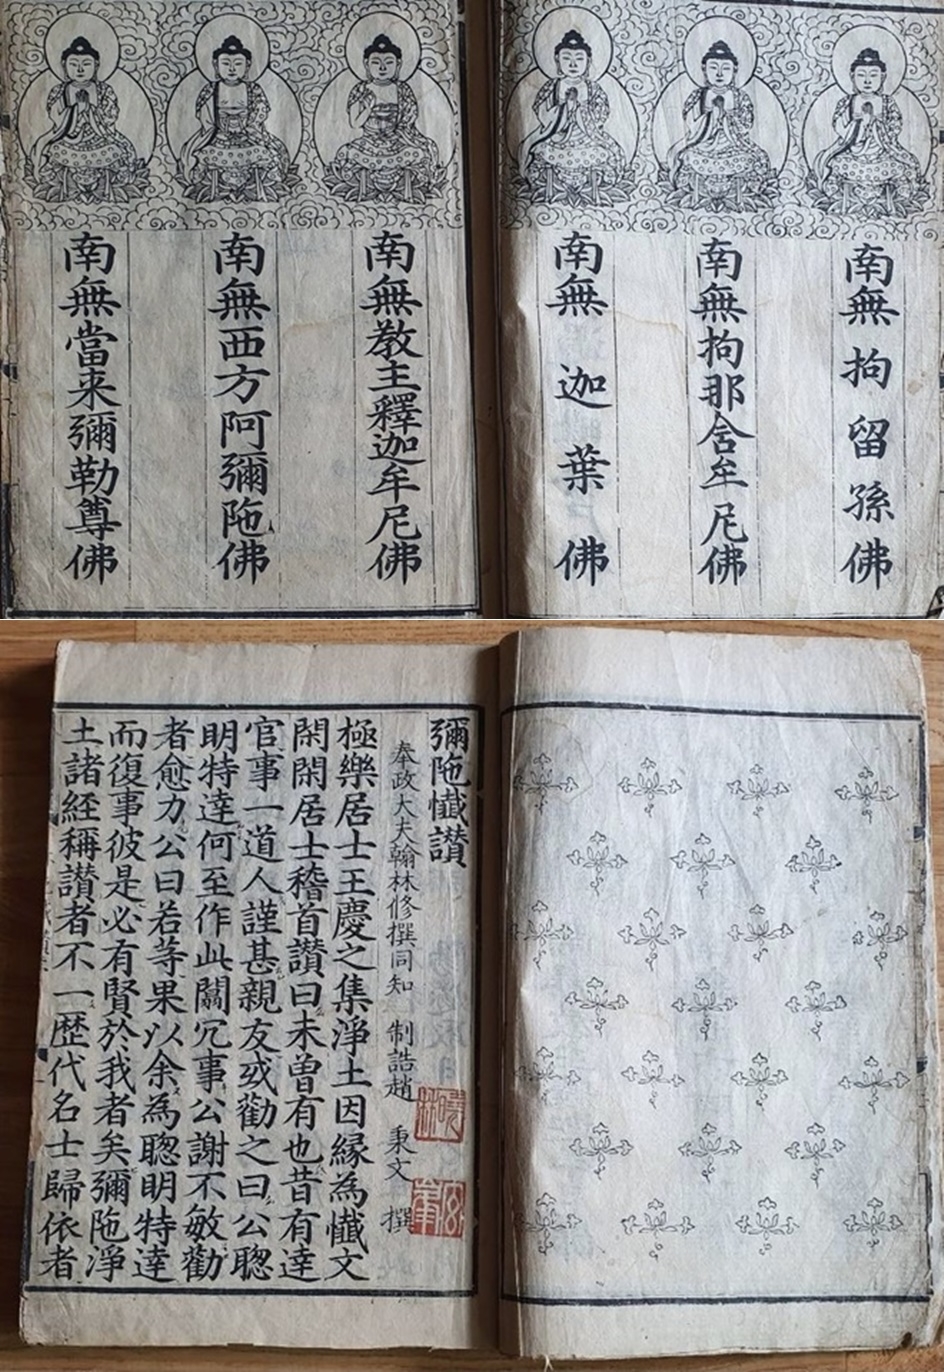 南無拘留孫佛
南無拘那含牟尼佛
南無迦葉佛
南無教主釋迦牟尼佛
南無西方阿彌陁佛
南無當来彌勒尊佛
彌陁懺讃
奉政大夫翰林修撰同知 制誥趙 秉文 撰
極樂居士王慶之集淨土因縁為懺文
閑閑居士稽首讃曰未曽有也昔有達
官事一道人謹甚親友或勸之曰公聦
明特達何至作此闒冗事公謝不敏勸
者愈力公曰若等果以余為聦明特達
而復事彼是必有賢於我者矣彌陁淨
土諸經稱讃者不一歴代名士歸依者